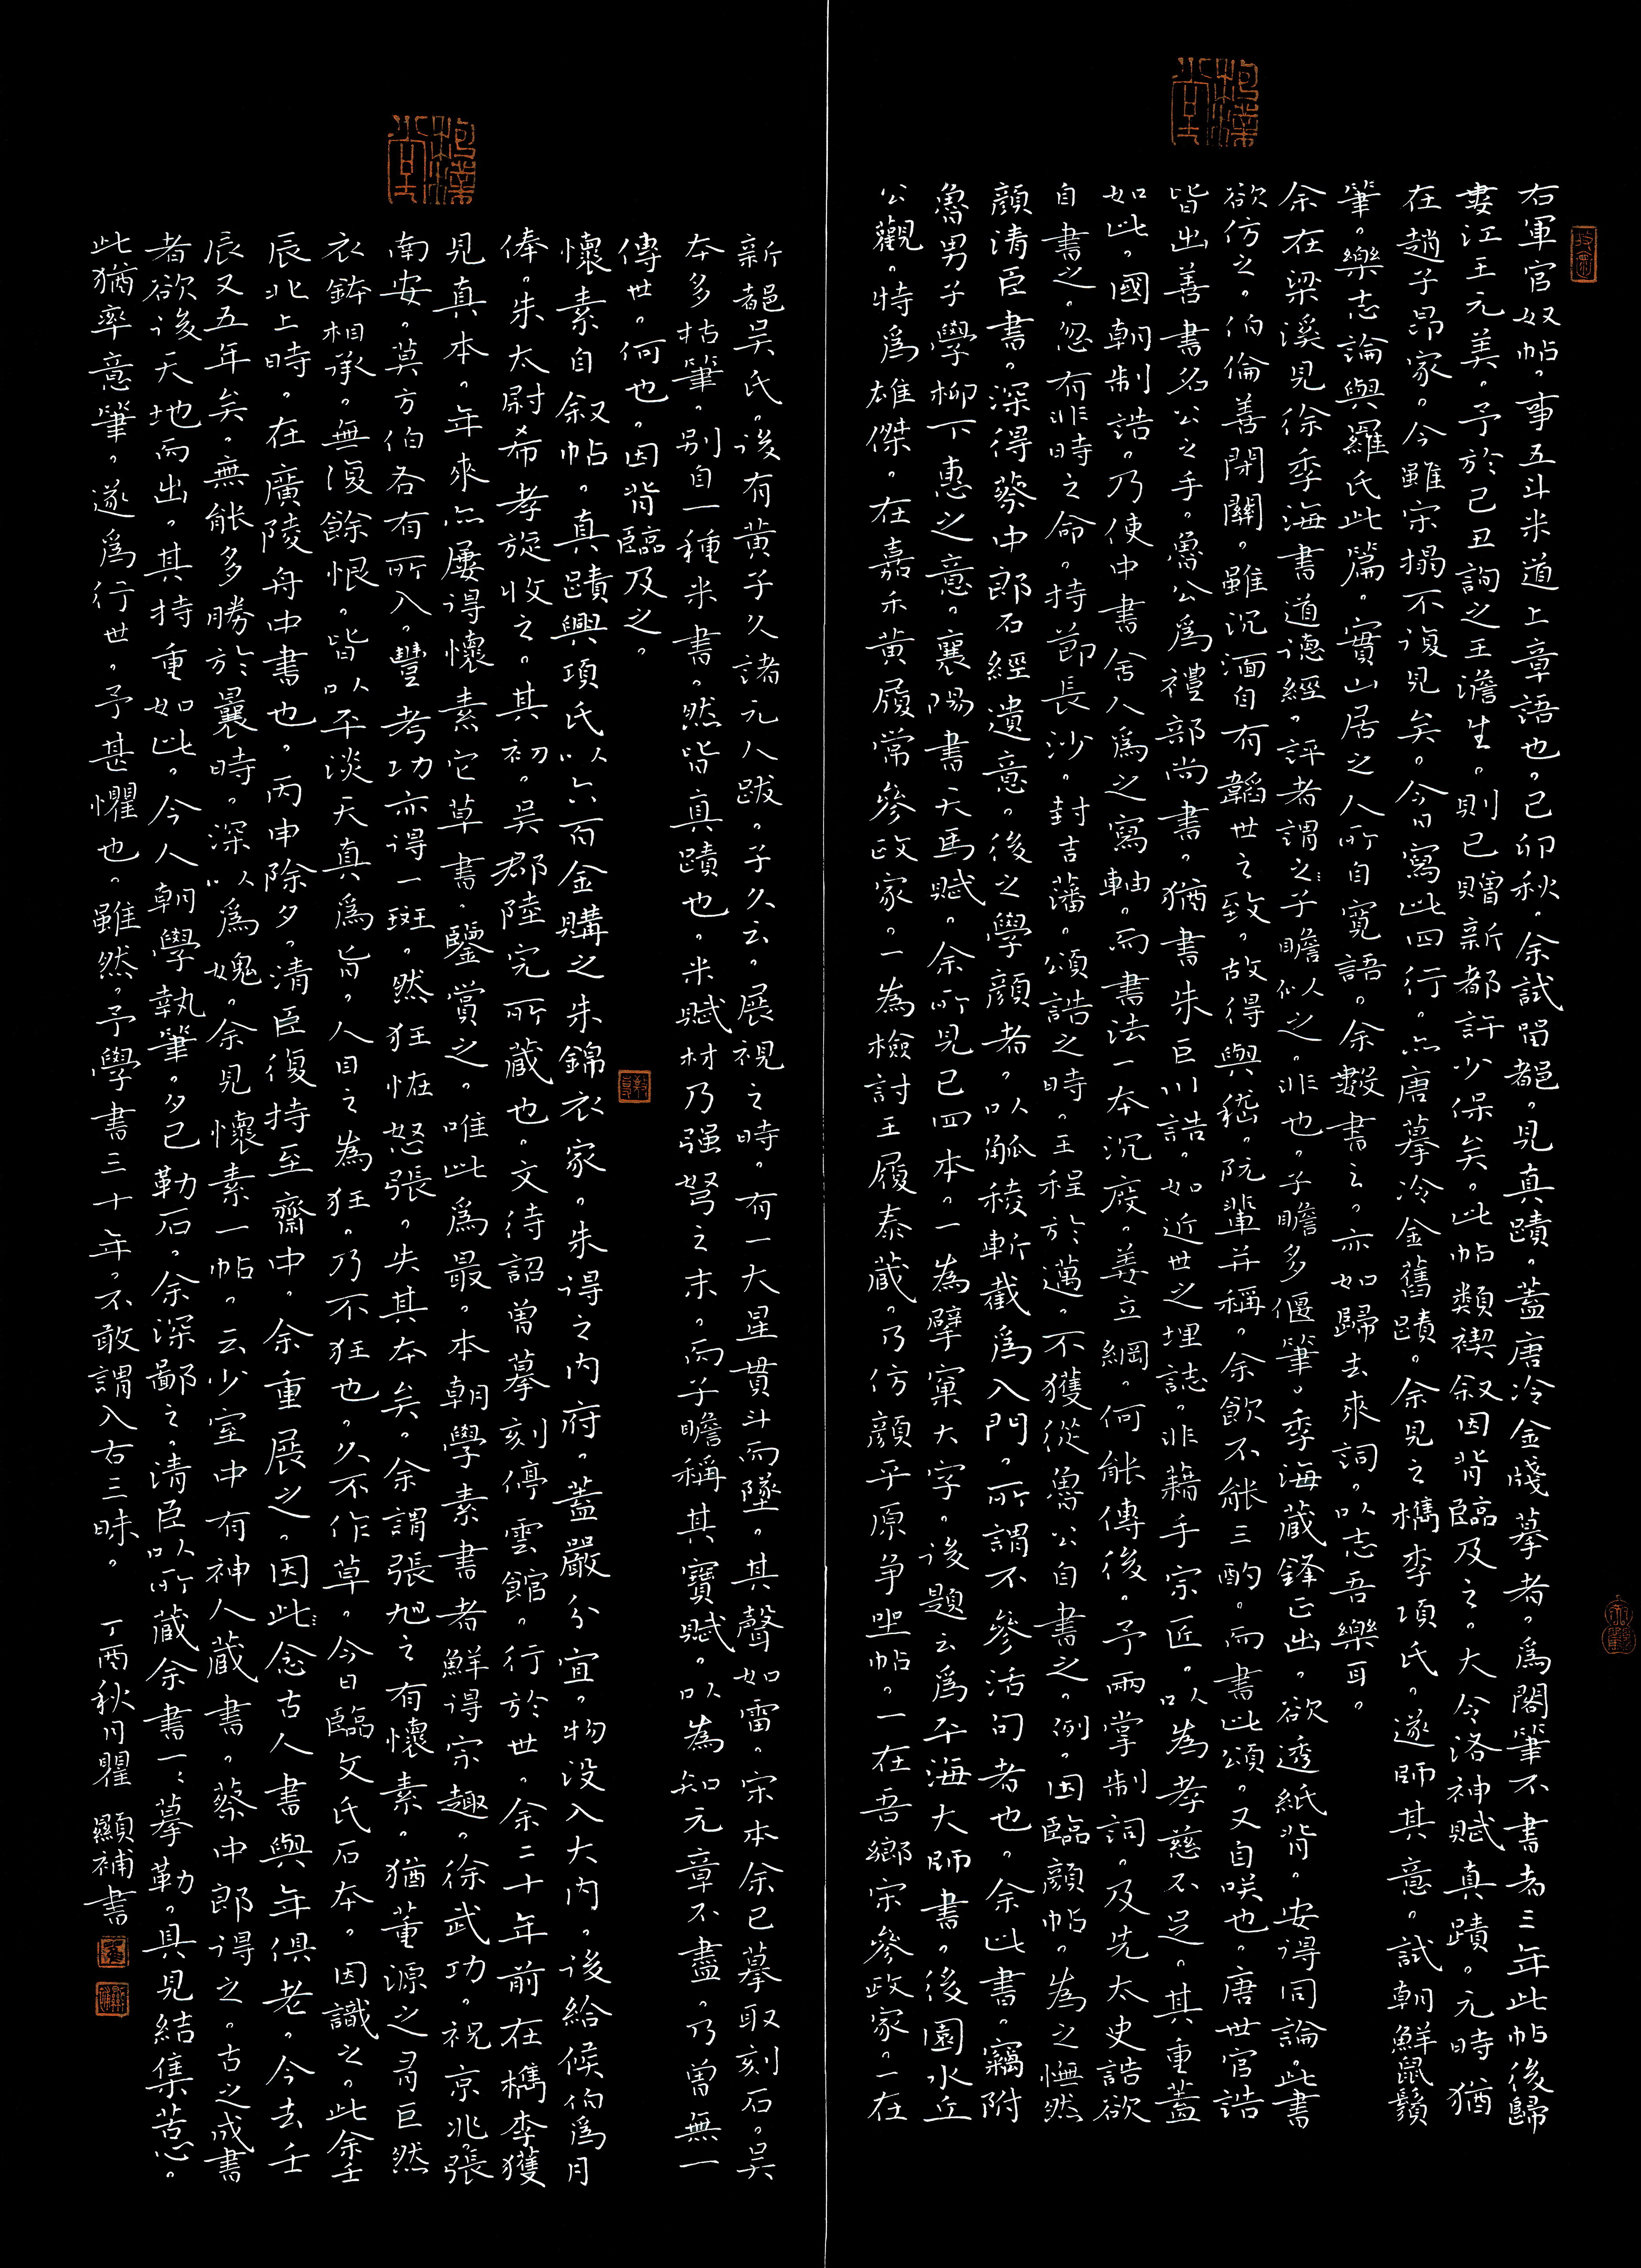 右軍官奴帖。事五斗米道上章語也。己卯秋。余試留都。見真蹟。蓋唐冷金牋摹者。為閣筆不書者三年此帖後歸
婁江王元美。予於己丑詢之王澹生。則已贈新都許少保矣。此帖類禊叙因背臨及之。大令洛神賦真蹟。元時猶
在趙子昂家。今雖宋搨不復見矣。今日寫此四行。亦唐摹冷金舊蹟。余見之檇李項氏。遂師其意。試朝鮮鼠鬚
筆。樂志論與羅氏此篇。實山居之人所自寬語。余數書之。亦如歸去來詞。以志吾樂耳。
余在梁溪見徐季海書道德經。評者謂之子瞻似之。非也。子瞻多偃筆。季海藏鋒正出。欲透紙背。安得同論。此書
欲仿之。伯倫善閉關。雖沉湎自有韜世之致。故得與嵇。阮輩并稱。余飲不能三酌。而書此頌。又自咲也。唐世官誥
皆出善書名公之手。魯公為禮部尚書。猶書朱巨川誥。如近世之埋誌。非藉手宗匠。以為孝慈不足。其重蓋
如此。國朝制誥。乃使中書舍人為之寫軸。而書法一本沉度。姜立綱。何能傳後。予兩掌制詞。及先太史誥欲
自書之。忽有非時之命。持節長沙。封吉藩。頌誥之時。王程於邁。不獲從魯公自書之。例。因臨顏帖。為之憮然
顏清臣書。深得蔡中郎石經遺意。後之學顏者。以觚稜斬截為入門。所謂不參活句者也。余此書。竊附
魯男子學柳下惠之意。襄陽書天馬賦。余所見已四本。一為擘窠大字。後題云為平海大師書。後園水丘
公觀。特為雄傑。在嘉禾黃履常參政家。一為檢討王履泰藏。乃仿顏平原爭坐帖。一在吾鄉宋參政家。一在
新都吳氏。後有黃子久諸元人跋。子久云。展視之時。有一大星貫斗而墜。其聲如雷。宋本余已摹取刻石。吳
本多枯筆。別自一種米書。然皆真蹟也。米賦材乃强弩之末。而子瞻稱其寶賦。以為知元章不盡。乃曾無一
傳世。何也。因背臨及之。
懷素自叙帖。真蹟興項氏以六百金購之朱錦衣家。朱得之內府。蓋嚴分宜。物沒入大內。後給候伯為月
俸。朱太尉希孝旋收之。其初。吳郡陸完所藏也。文待詔曾摹刻停雲館。行於世。余二十年前在檇李獲
見真本。年來亦屢得懷素它草書。鑒賞之。唯此為最。本朝學素書者鮮得宗趣。徐武功。祝京兆。張
南安。莫方伯各有所入。豐考功亦得一斑。然狂怪怒張。失其本矣。余謂張旭之有懷素。猶董源之有巨然
衣鉢相承。無復餘恨。皆以平淡天真為旨。人目之為狂。乃不狂也。久不作草。今日臨文氏石本。因識之。此余壬
辰北上時。在廣陵舟中書也。丙申除夕。清臣復持至齋中。余重展之。因此念古人書與年俱老。今去壬
辰又五年矣。無能多勝於曩時。深以為媿。余見懷素一帖。云少室中有神人藏書。蔡中郎得之。古之成書
者欲後天地而出。其持重如此。今人朝學執筆。夕已勒石。余深鄙之。清臣以所藏余書一一摹勒。具見結集苦心。
此猶率意筆。遂為行世。予甚懼也。雖然。予學書三十年。不敢謂入古三昧。 丁酉秋月瞿 顯補書